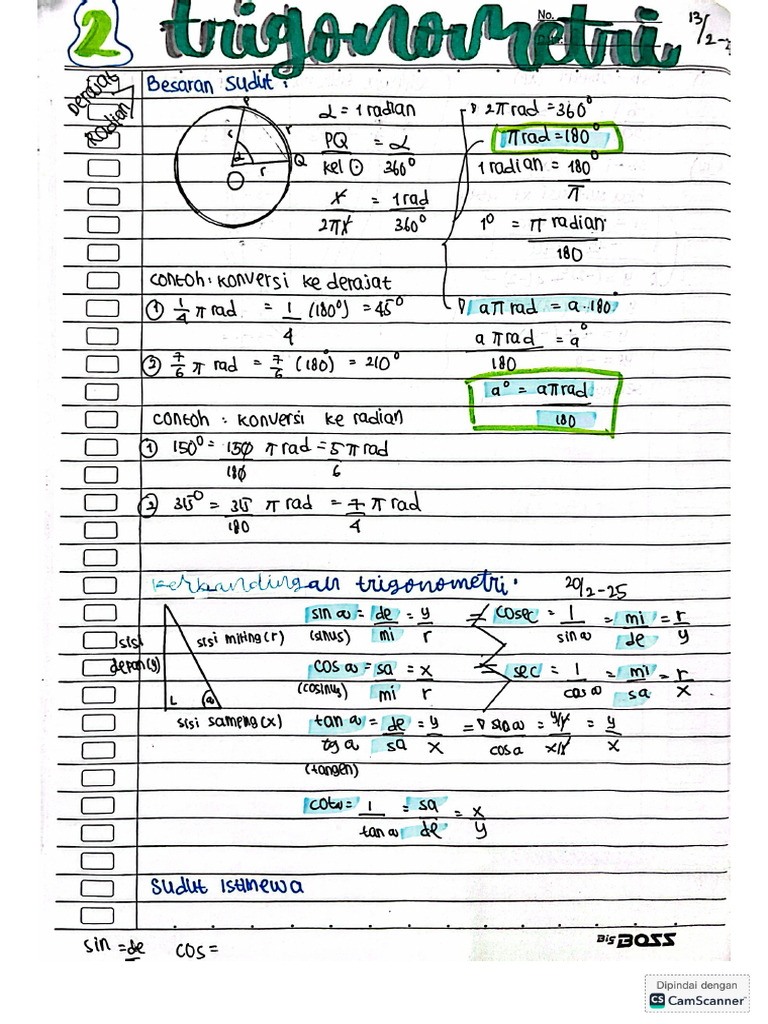 2 trigonometri
No.
13/2-2
Derajat
Radian
Besaran Sudut :
P r Q r r α O
α = 1 radian
PQ / Kel ⊙ = α / 360°
r / 2πr = 1 rad / 360°
2π rad = 360°
π rad = 180°
1 radian = 180° / π
1° = π radian / 180
contoh : konversi ke derajat
① 1/4 π rad = 1/4 (180°) = 45°
② 7/6 π rad = 7/6 (180°) = 210°
aπ rad = a . 180°
a π rad / 180 = a°
a° = aπ rad / 180
contoh : konversi ke radian
① 150° = 150/180 π rad = 5/6 π rad
② 315° = 315/180 π rad = 7/4 π rad
Perbandingan trigonometri.
20/2-25
sisi depan (y)
sisi miring (r)
sisi samping (x)
α
sin α = de/mi = y/r
(sinus)
cosec = 1/sin α = mi/de = r/y
cos α = sa/mi = x/r
(cosinus)
sec = 1/cos α = mi/sa = r/x
tan α = de/sa = y/x => sin α / cos α = y/r / x/r = y/x
tg α
(tangen)
cot α = 1/tan α = sa/de = x/y
Sudut istimewa
sin = de
cos =
Big BOSS
Dipindai dengan
CS CamScanner